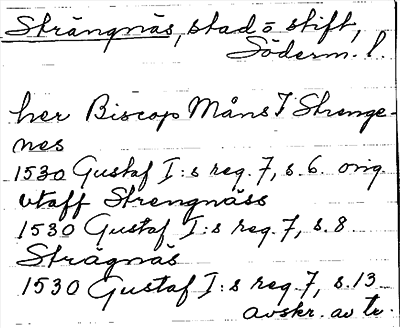 Strängnäs, stad o stift,
Söderm. l.
her Biscop Måns I Strenge-
nes
1530 Gustaf I:s reg. 7, s. 6. orig.
vtaff Strengnäss
1530 Gustaf I:s reg. 7, s. 8
Strägnäs
1530 Gustaf I:s reg. 7, s. 13
avskr. av tr.